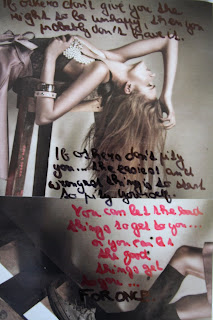 If others don't give you the
right to be unhappy, then you
probably don't have it.
If others don't pity
you... the easiest and
wrongest thing is to start
to pity yourself.
You can let the bad
things to get to you...
or you can let
the good
things get
to you...
FOR ONCE